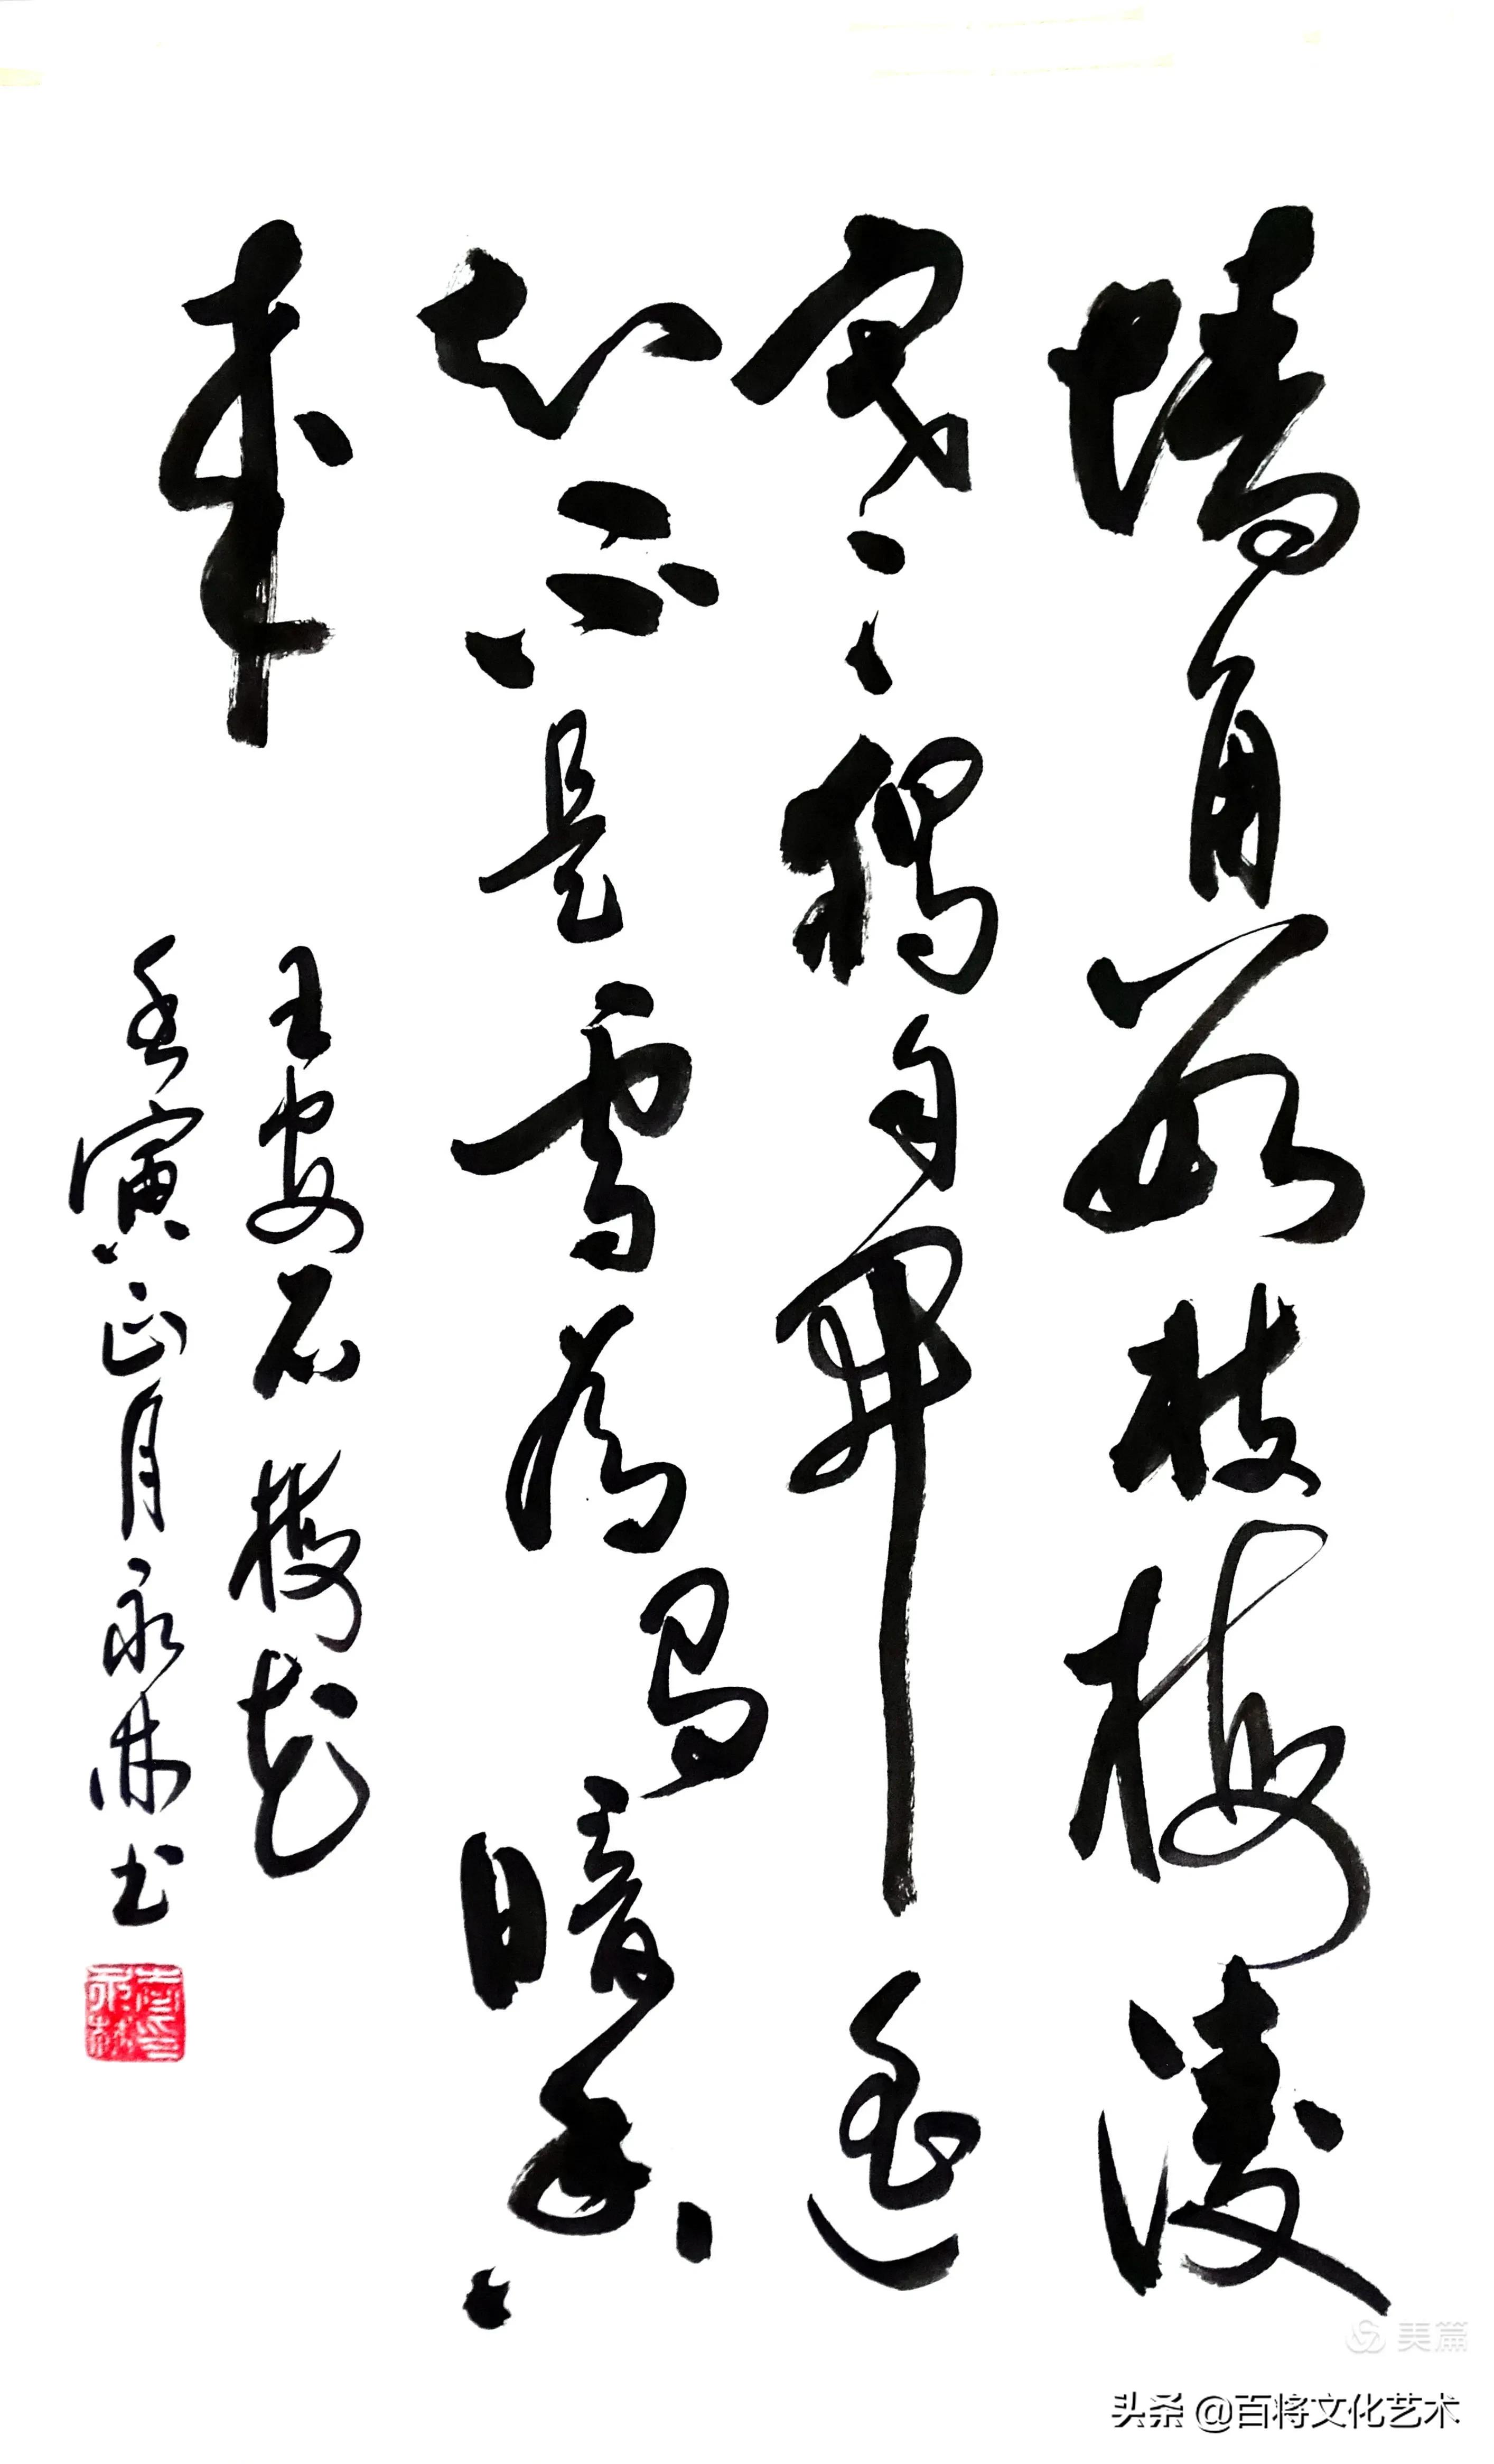 墙角數枝梅凌
寒獨自開遥
知不是雪為有暗香
来
王安石梅花
壬寅正月永林书
美篇
头条 @百将文化艺术